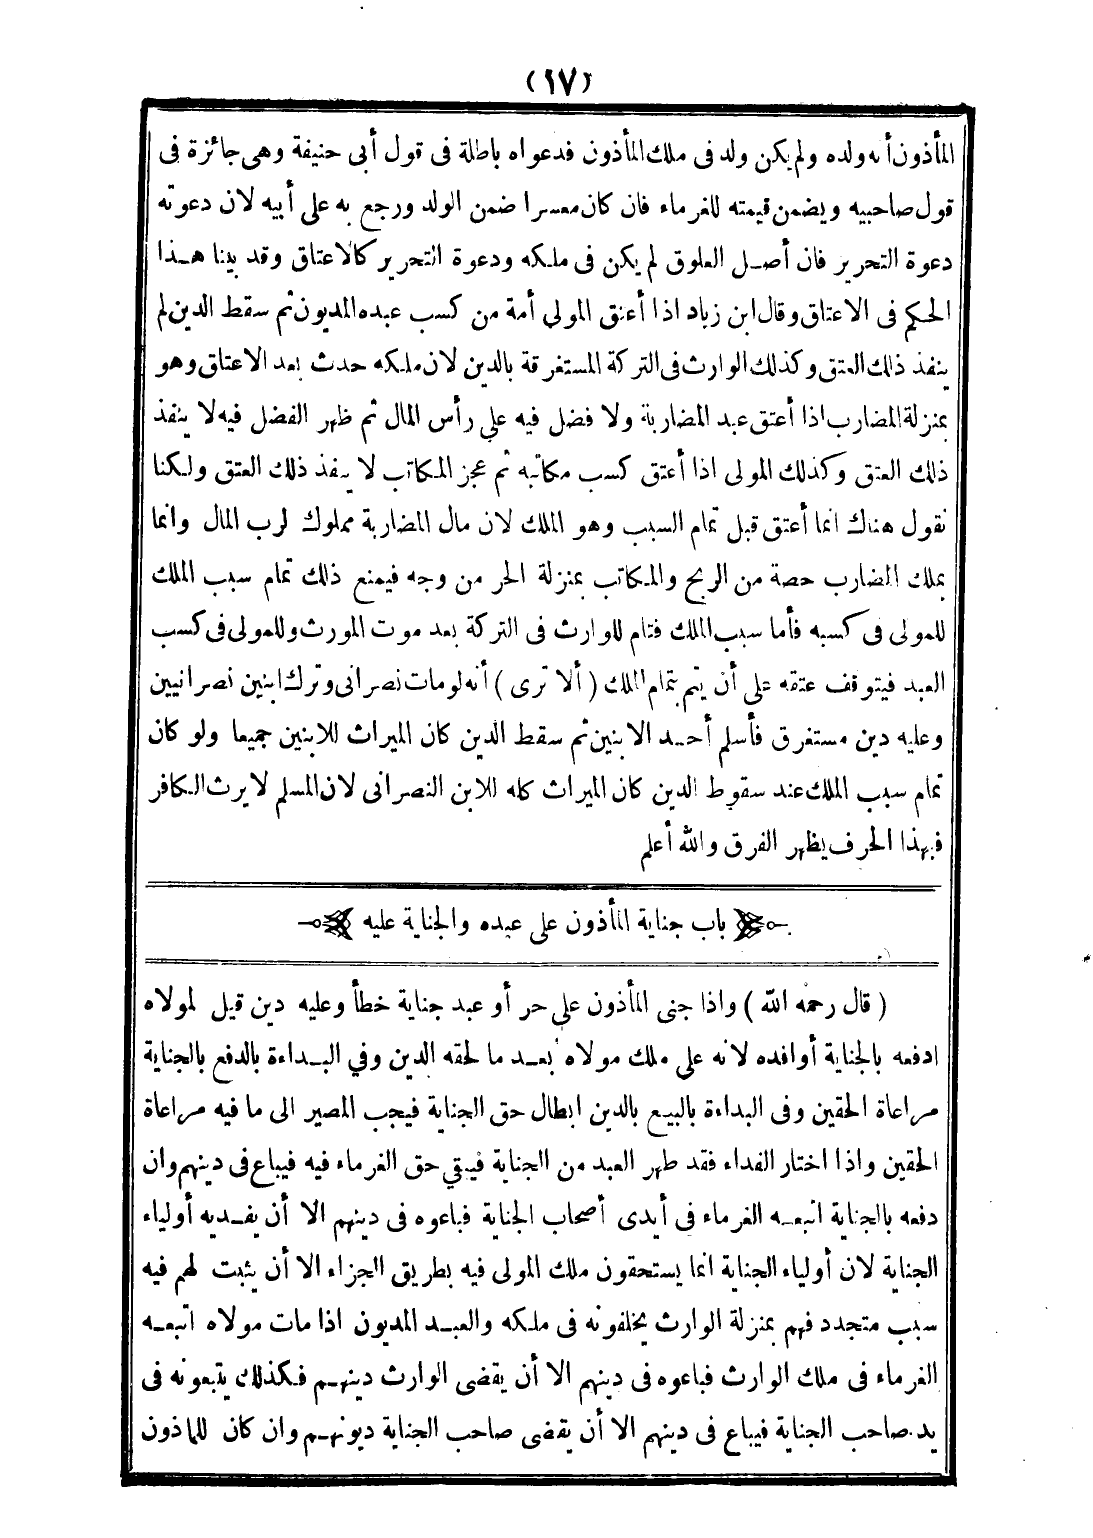 (١٧)
المأذون أنه ولده ولم يكن ولد فى ملك المأذون فدعواه باطلة فى قول أبى حنيفة وهى جائزة فى
قول صاحبيه ويضمن قيمته للغرماء فان كان معسرا ضمن الولد ورجع به على أبيه لان دعوته
دعوة التحرير فان أصل العلوق لم يكن فى ملكه ودعوة التحرير كالاعتاق وقد بينا هذا
الحكم فى الاعتاق وقال ابن زياد اذا أعتق المولى أمة من كسب عبده المديون ثم سقط الدين لم
ينفذ ذلك العتق وكذلك الوارث فى التركة المستغرقة بالدين لان ملكه حدث بعد الاعتاق وهو
بمنزلة المضارب اذا أعتق عبد المضاربة ولا فضل فيه على رأس المال ثم ظهر الفضل فيه لا ينفذ
ذلك العتق وكذلك المولى اذا أعتق كسب مكاتبه ثم عجز المكاتب لا ينفذ ذلك العتق ولكنا
نقول هناك انما أعتق قبل تمام السبب وهو الملك لان مال المضاربة مملوك لرب المال وانما
يملك المضارب حصة من الربح والمكاتب بمنزلة الحر من وجه فيمنع ذلك تمام سبب الملك
للمولى فى كسبه فأما سبب الملك فتام للوارث فى التركة بعد موت المورث وللمولى فى كسب
العبد فيتوقف عتقه على أن يتم بتمام الملك (ألا ترى) أنه لو مات نصرانى وترك ابنين نصرانيين
وعليه دين مستغرق فأسلم أحد الابنين ثم سقط الدين كان الميراث للابنين جميعا ولو كان
تمام سبب الملك عند سقوط الدين كان الميراث كله للابن النصرانى لان المسلم لا يرث الكافر
فبهذا الحرف يظهر الفرق والله أعلم
باب جناية المأذون على عبده والجناية عليه
(قال رحمه الله) واذا جنى المأذون على حر أو عبد جناية خطأ وعليه دين قيل لمولاه
ادفعه بالجناية أو افده لانه على ملك مولاه بعد ما لحقه الدين وفي البداءة بالدفع بالجناية
مراعاة الحقين وفى البداءة بالبيع بالدين ابطال حق الجناية فيجب المصير الى ما فيه مراعاة
الحقين واذا اختار الفداء فقد طهر العبد من الجناية فيبقي حق الغرماء فيه فيباع فى دينهم وان
دفعه بالجناية اتبعه الغرماء فى أيدى أصحاب الجناية فباعوه فى دينهم الا أن يفديه أولياء
الجناية لان أولياء الجناية انما يستحقون ملك المولى فيه بطريق الجزاء الا أن يثبت لهم فيه
سبب متجدد فهم بمنزلة الوارث يخلفونه فى ملكه والعبد المديون اذا مات مولاه اتبعه
الغرماء فى ملك الوارث فباعوه فى دينهم الا أن يقضى الوارث دينهم فكذلك يتبعونه فى
يد صاحب الجناية فيباع فى دينهم الا أن يقضى صاحب الجناية ديونهم وان كان للمأذون